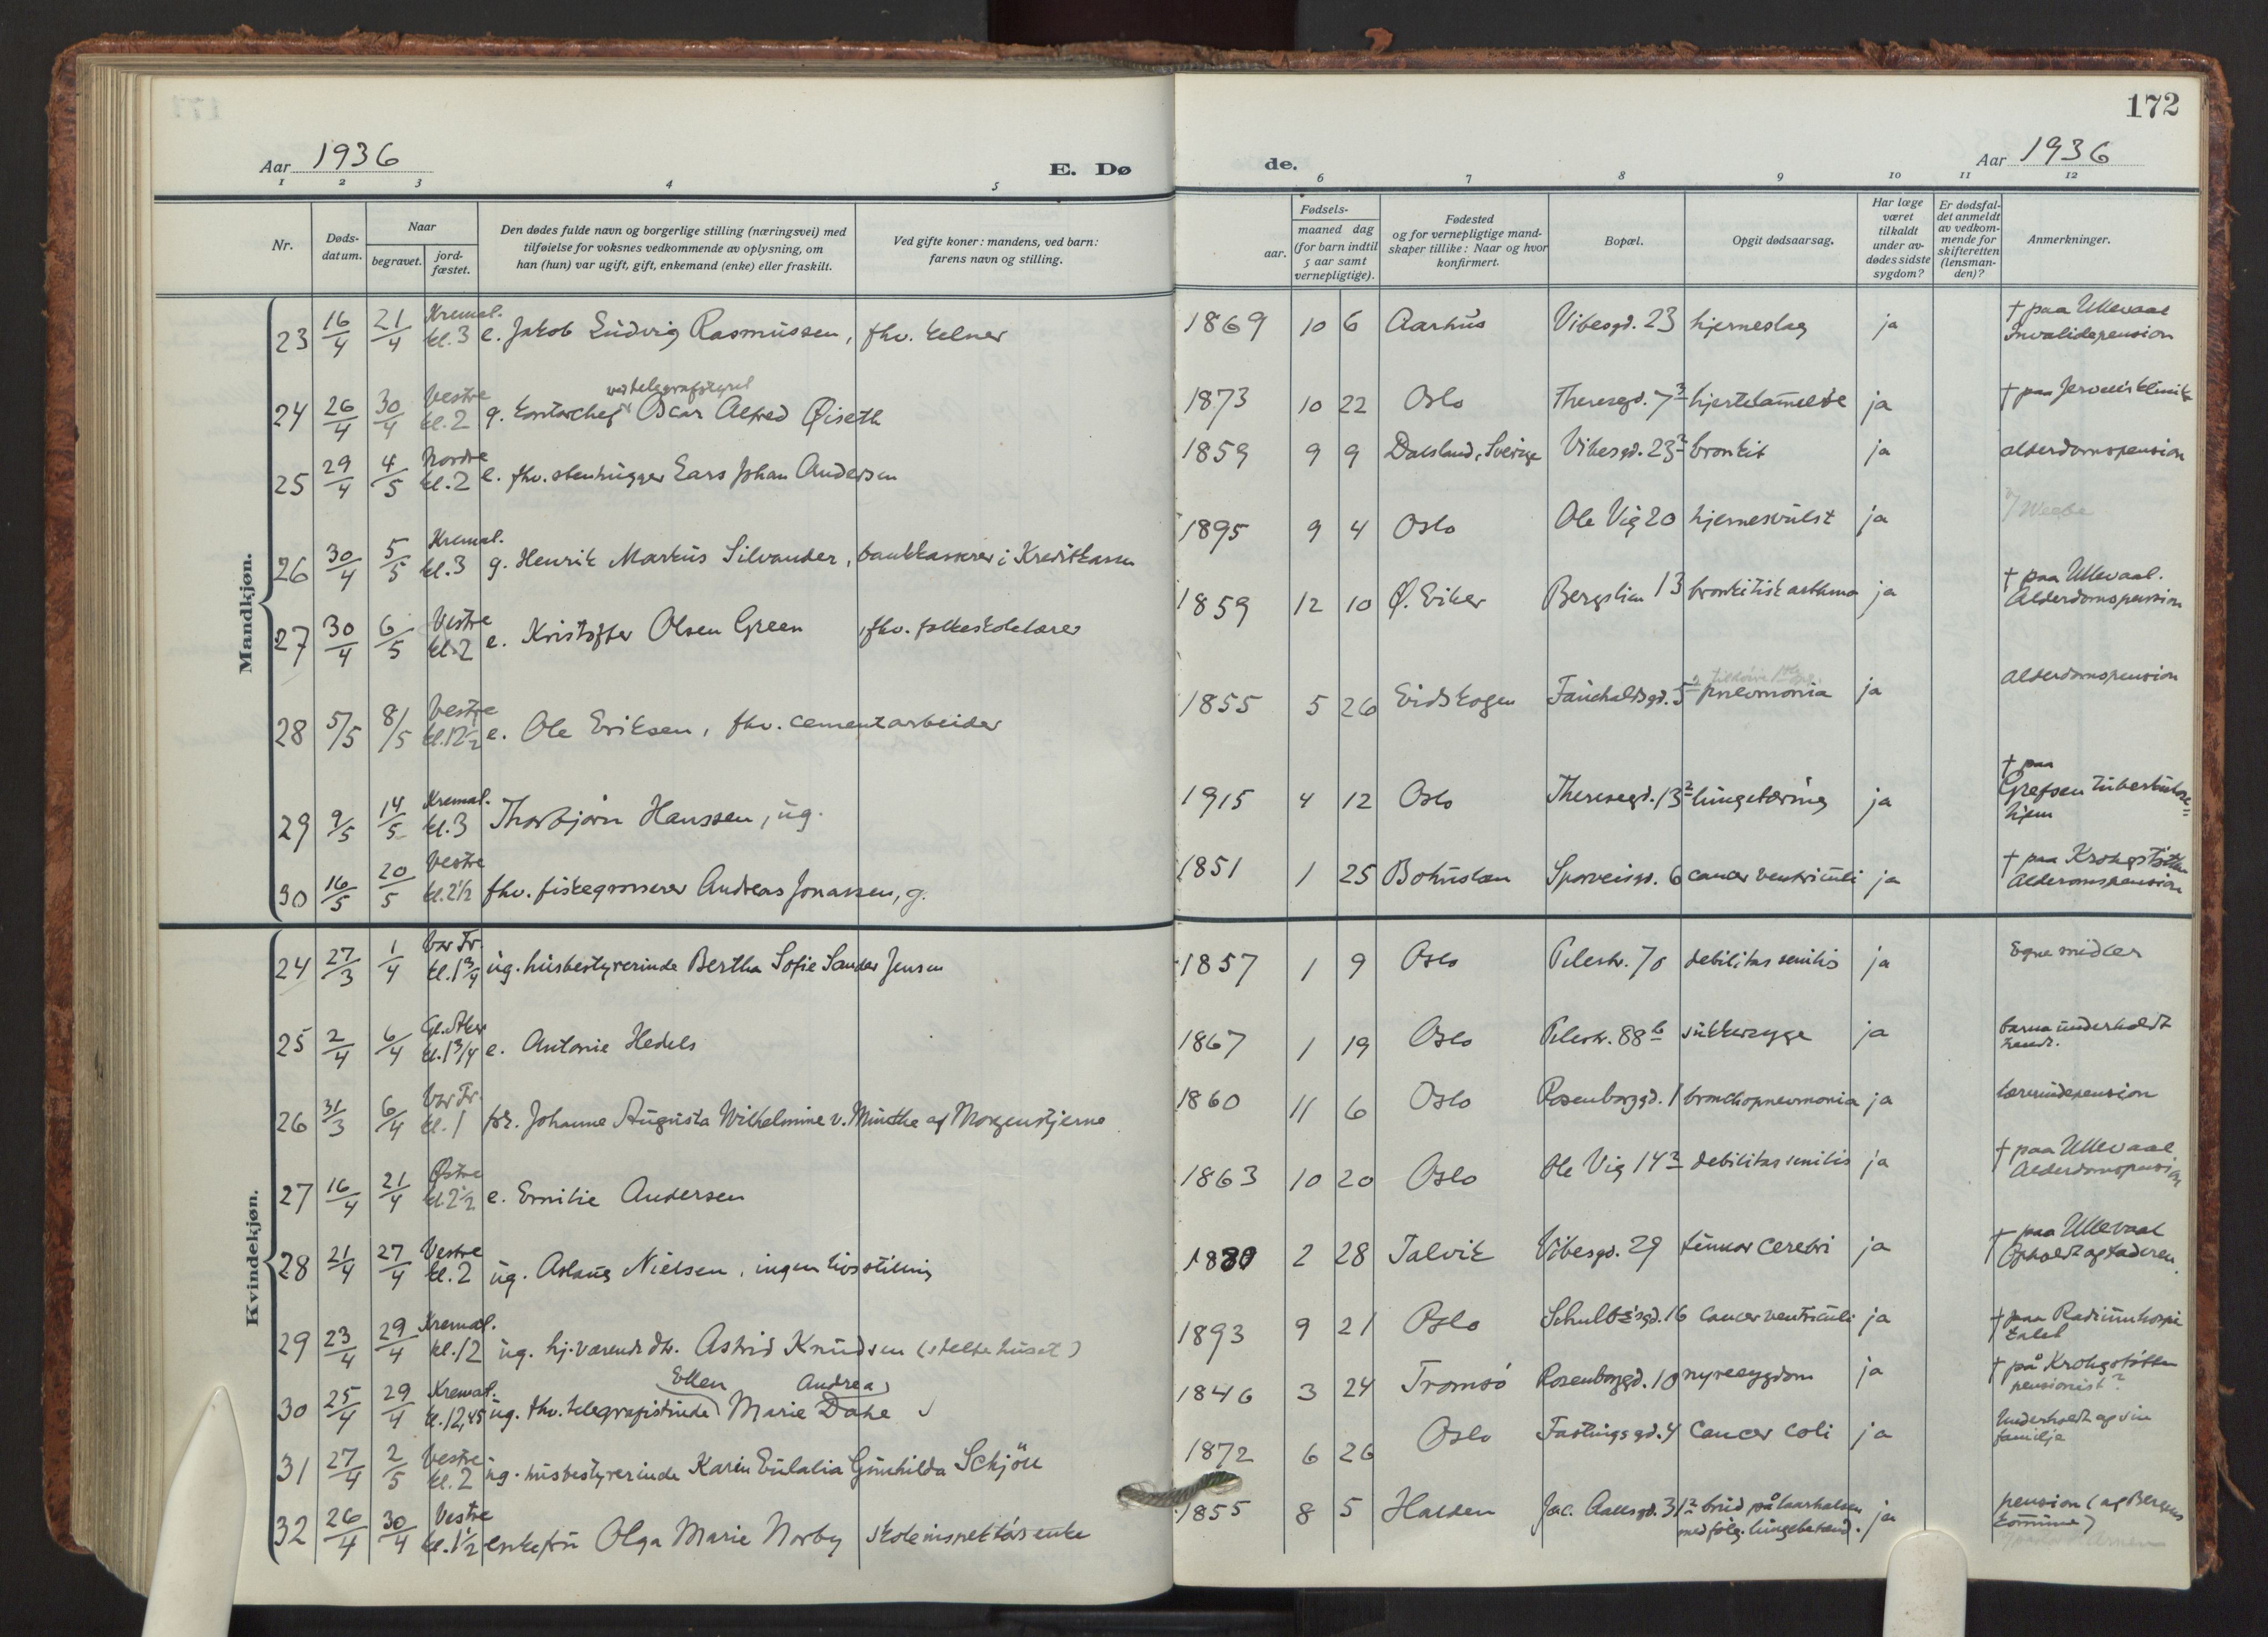 172
Aar 1936
E. Dø
de.
Aar 1936
1 2 3 4 5 6 7 8 9 10 11 12
Nr.
Døds-
datum.
Naar
begravet.
jord-
fæstet.
Den dødes fulde navn og borgerlige stilling (næringsvei) med
tilføielse for voksnes vedkommende av oplysning, om
han (hun) var ugift, gift, enkemand (enke) eller fraskilt.
Ved gifte koner: mandens, ved barn:
farens navn og stilling.
Fødsels-
aar.
maaned dag
(for barn indtil
5 aar samt
vernepligtige).
Fødested
og for vernepligtige mand-
skaper tillike: Naar og hvor
konfirmert.
Bopæl.
Opgit dødsaarsag.
Har læge
været
tilkaldt
under av-
dødes sidste
sygdom?
Er dødsfal-
det anmeldt
av vedkom-
mende for
skifteretten
(lensman-
den)?
Anmerkninger.
Mandkjøn.
23 16/4 21/4 Kremat. kl. 3 e. Jakob Ludvig Rasmussen, fhv. kelner 1869 10 6 Aarhus Vibesgd. 23 hjerneslag ja † paa Ullevaal Invalidepension
24 26/4 30/4 Vestre kl. 2 g. kontorchef ved telegrafstyret Oscar Alfred Øiseth 1873 10 22 Oslo Theresegd. 7 3 hjertelammelse ja † paa klinik
25 29/4 4/5 Nordre kl. 2 e. fhv. stenhugger Lars Johan Andersen 1859 9 9 Dalsland, Sverige Vibesgd. 23 2 bronkit ja alderdomspension
26 30/4 5/5 Kremat. kl. 3 g. Henrik Markus Silvander, bankkasserer i Kreditkassen 1895 9 4 Oslo Ole Vig 20 hjernesvulst ja
27 30/4 6/5 Vestre kl. 2 e. Kristoffer Olsen Green, fhv. folkeskolelærer 1859 12 10 Ø. Eiker Bergslien 13 bronkitisk asthma ja † paa Ullevaal. Alderdomspension
28 5/5 8/5 Vestre kl. 12 1/2 e. Ole Eriksen, fhv. cementarbeider 1855 5 26 Eidskogen Fauchaldsgd. 5 2 pneumonia ja alderdomspension
29 9/5 14/5 Kremat. kl. 3 Thorbjørn Hanssen, ug. 1915 4 12 Oslo Theresegd. 13 2 lungetæring ja † paa Grefsen tuberkulose= hjem
30 16/5 20/5 Vestre kl. 2 1/2 fhv. fiskegrosserer Andreas Jonassen, g. 1851 1 25 Bohuslen Sporveisgd. 6 cancer ventriculi ja † paa Krohgstøtten Alderomspension
Kvindekjøn.
24 27/3 1/4 Vor Fr. kl. 1 3/4 ug. husbestyrerinde Bertha Sofie Sander Jensen 1857 1 9 Oslo Pilestr. 70 debilitas senilis ja Egne midler
25 2/4 6/4 Gl. Aker kl. 1 3/4 e. Antonie Hedels 1867 1 19 Oslo Pilestr. 88 b sukkersyge ja barna underholdt
26 31/3 6/4 Vor Fr. kl. 1 frk. Johanne Augusta Wilhelmine v. Munthe af Morgenstjerne 1860 11 6 Oslo Rosenborggd. 1 bronchopneumonia ja lærerindepension
27 16/4 21/4 Østre kl. 2 1/2 e. Emilie Andersen 1863 10 20 Oslo Ole Vig 14 2 debilitas senilis ja † paa Ullevaal. Alderdomspension
28 21/4 27/4 Vestre kl. 2 ug. Aslaug Nielsen, ingen livsstilling 2 28 Talvik Vibesgd. 29 tumor cerebri ja † paa Ullevaal Opholdt af faderen.
29 23/4 29/4 Kremat. kl. 12 ug. hj.værende dtr. Astrid Knudsen (stelte huset) 1893 9 21 Oslo Schultzsgd. 16 cancer ventriculi ja † paa Radiumhospi talet
30 25/4 29/4 Kremat. kl. 12,45 ug. fhv. telegrafistinde Ellen Marie Andrea Dahe 1846 3 24 Tromsö Rosenborggd. 10 nyresygdom ja † på Krohgstøtten pensionist?
31 27/4 2/5 Vestre kl. 2 ug. husbestyrerinde Karen Eulalia Gunhilda Schjöll 1872 6 26 Oslo Fastingsgd. 4 Cancer coli ja Underholdt af sin familje
32 26/4 30/4 Vestre kl. 1 1/2 enkefru Olga Marie Norby skoleinspektörs enke 1855 8 5 Halden Jac. Aallsgd. 31 2 brud på laarhalsen med følg. lungebetænd. ja pension (af Bergens kommune)